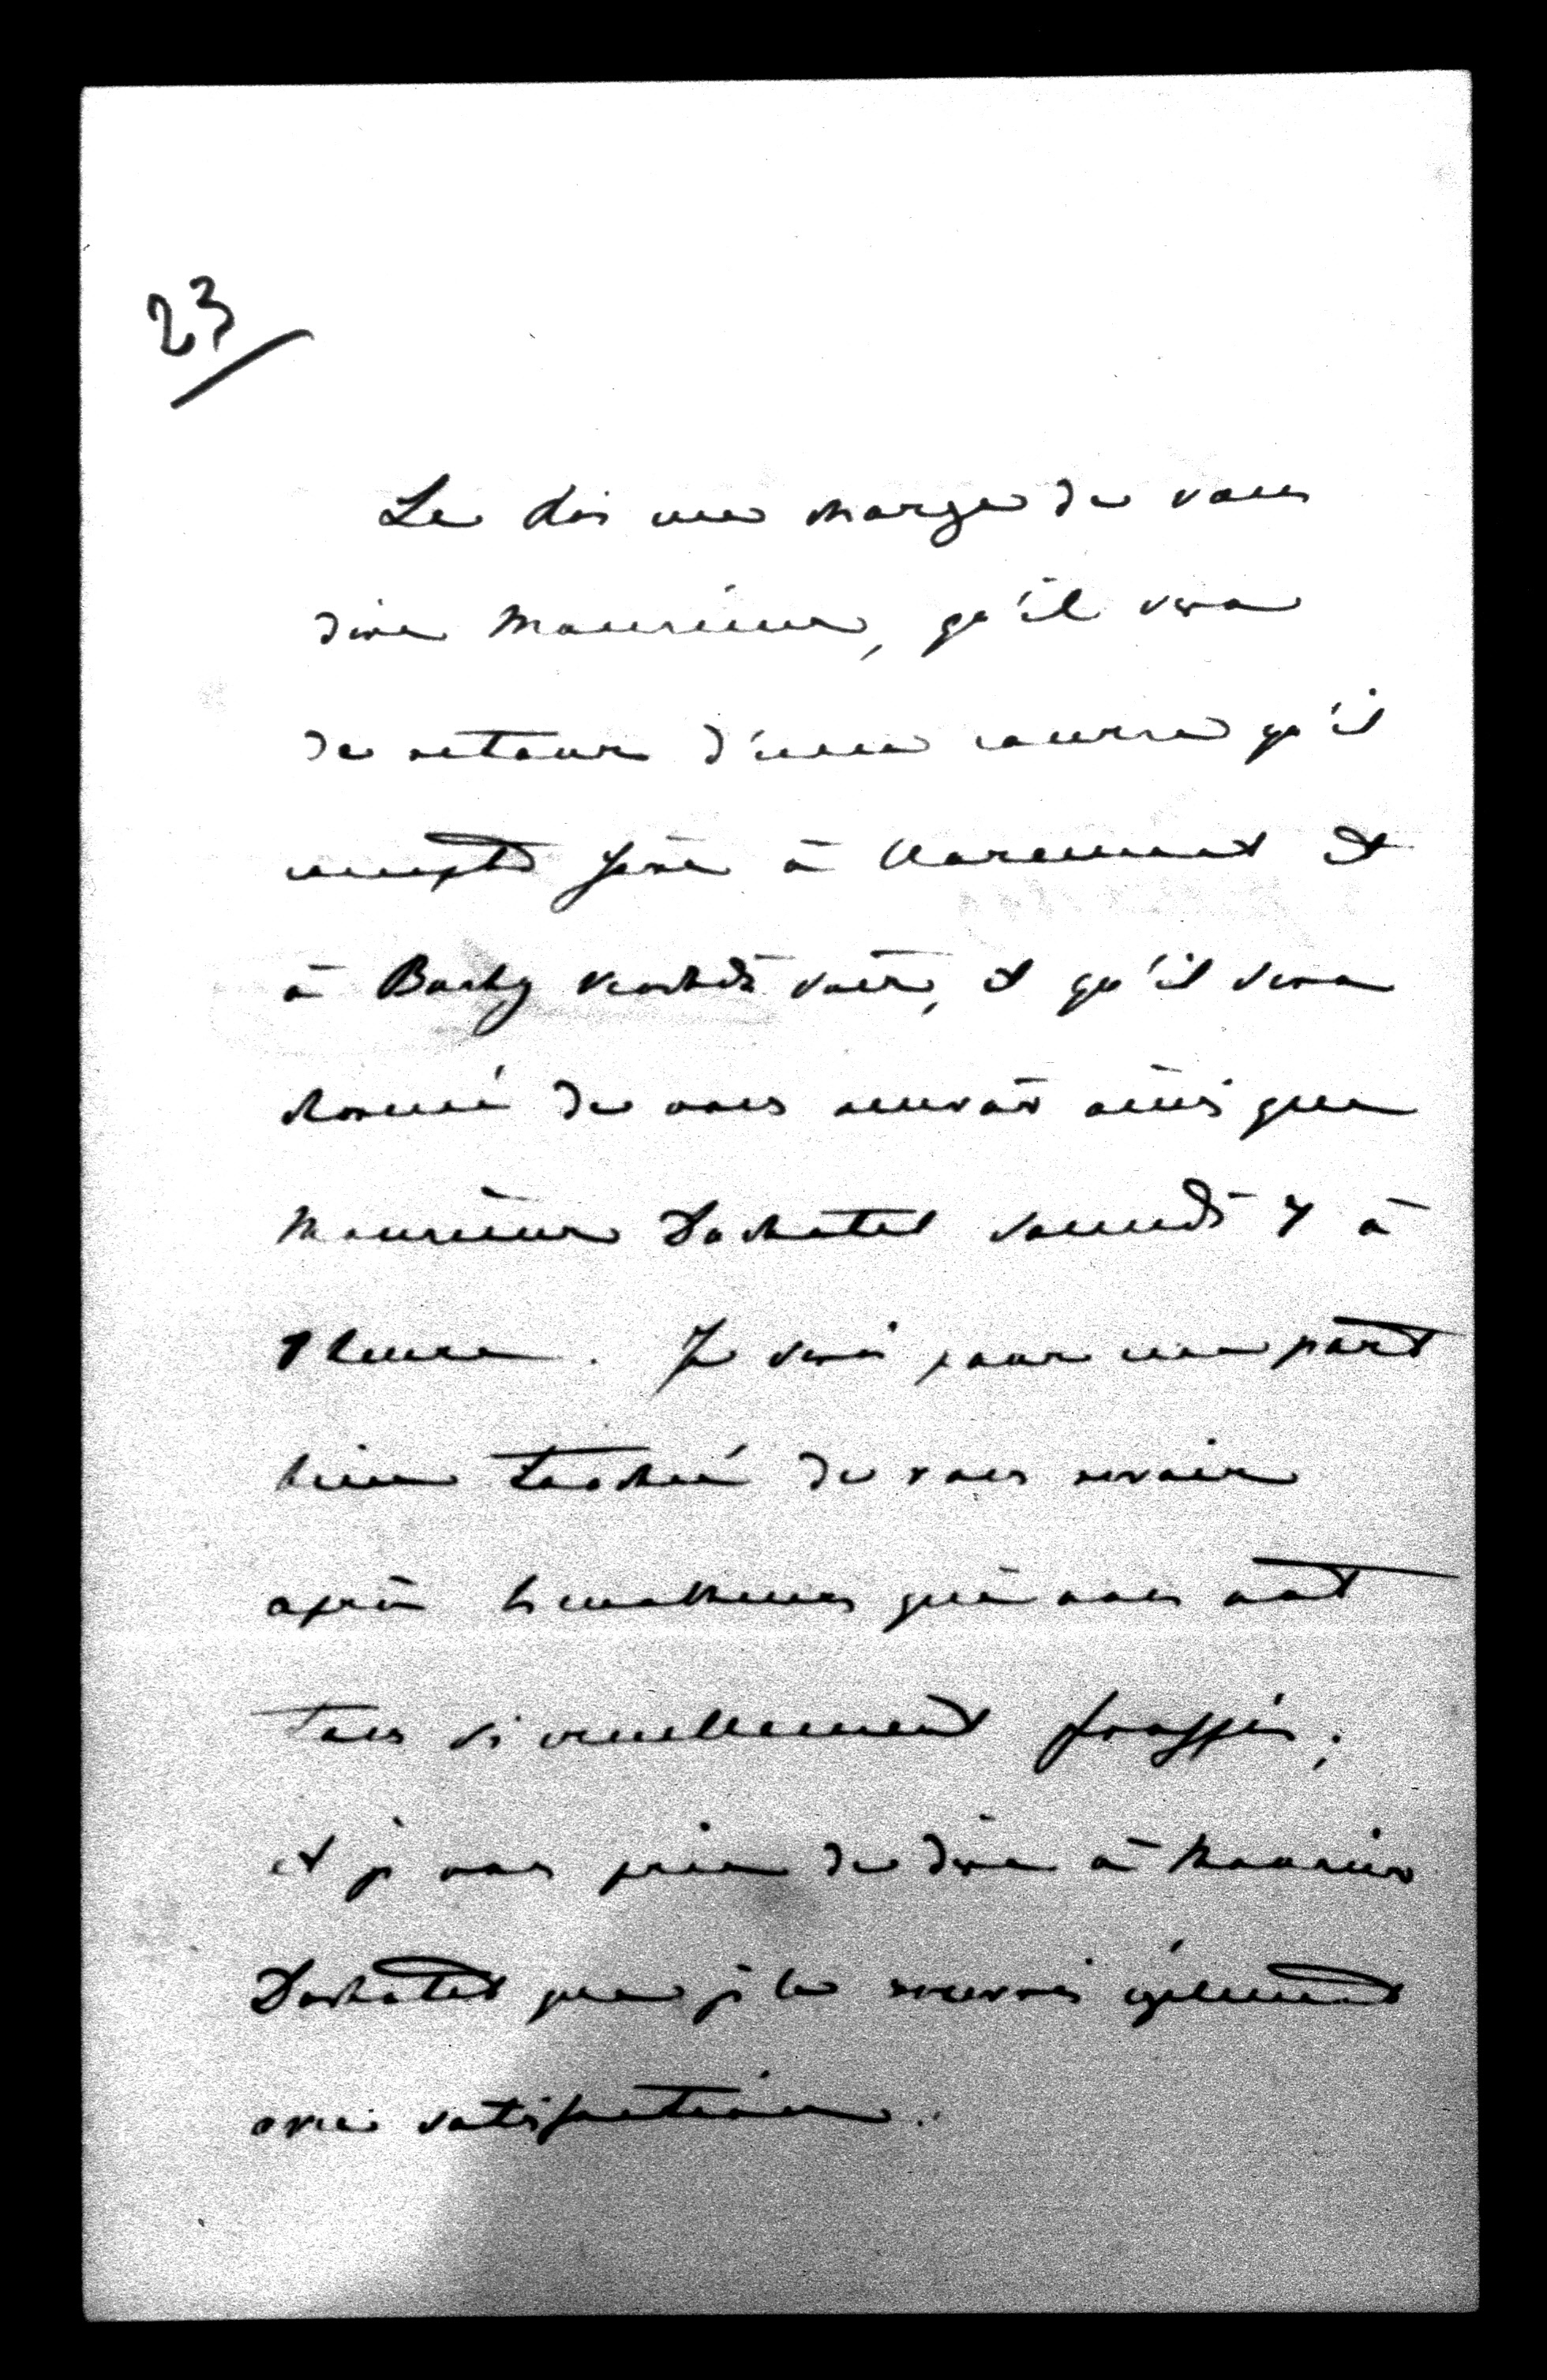 23
Le Roi me charge de vous
dire Monsieur, qu'il sera
de retour d'une course qu'il
compte faire à Claremont et
à Bushy vendredi soir, et qu'il sera
charmé de vous revoir ainsi que
Monsieur Duchatel samedi 7 à
1 heure. Je serai pour ma part
bien touchée de vous revoir
après les malheurs qui nous ont
tous si cruellement frappés;
et je vous prie de dire à Monsieur
Duchatel que je le reverrai également
avec satisfaction.